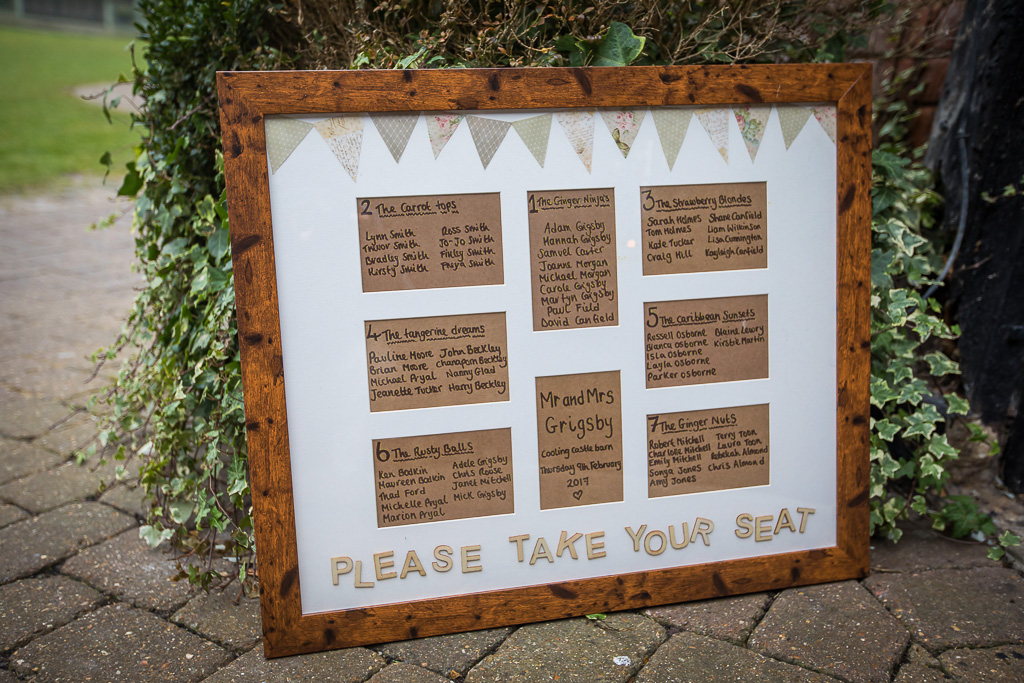 2 The Carrot tops
Lynn Smith Ross Smith
Trevor Smith Jo-Jo Smith
Bradley Smith Finley Smith
Kirsty Smith Freya Smith
1 The Ginger Ninja's
Adam Grigsby
Hannah Grigsby
Samuel Carter
Joanne Morgan
Michael Morgan
Carole Grigsby
Martyn Grigsby
Paul Field
David Canfield
3 The Strawberry Blondes
Sarah Holmes Shane Canfield
Tom Holmes Liam Wilkinson
Kade Tucker Lisa Cunnington
Craig Hill Kayleigh Canfield
4 The tangerine dreams
Pauline Moore John Beckley
Brian Moore Beckley
Michael Aryal Nanny Glad
Jeanette Tucker Harry Beckley
5 The Caribbean Sunsets
Russell Osborne Blaine Lewry
Bianca Osborne Kirstie Martin
Isla Osborne
Layla Osborne
Parker Osborne
6 The Rusty Balls
Ken Bodkin Adele Grigsby
Maureen Bodkin Chris Roose
Thad Ford Janet Mitchell
Michelle Aryal Mick Grigsby
Marion Aryal
Mr and Mrs
Grigsby
Cooling castle barn
Thursday 9th February
2017
♡
7 The Ginger Nuts
Robert Mitchell Terry Toon
Charlotte Mitchell Laura Toon
Emily Mitchell Rebekah Almond
Sonya Jones Chris Almond
Amy Jones
PLEASE TAKE YOUR SEAT